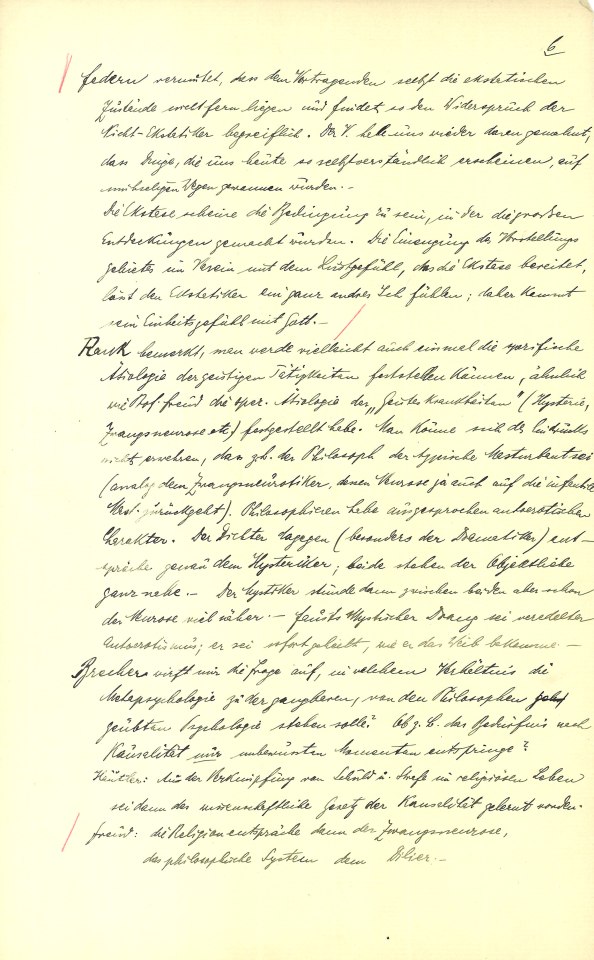 6
Federn vermutet, dass dem Vortragenden selbst die ekstatischen
Zustände weltfern liegen und findet so den Widerspruch der
Nicht-Ekstatiker begreiflich. Der V. habe uns wieder daran gemahnt,
dass Dinge, die uns heute so selbstverständlich erscheinen, auf
mühseligen Wegen gewonnen wurden. –
Die Ekstase scheine die Bedingung zu sein, in der die grossen
Entdeckungen gemacht wurden. Die Einengung des Vorstellungs
gebietes im Verein mit dem Lustgefühl, das die Ekstase bereitet,
lässt den Ekstatiker ein ganz andres Ich fühlen; daher kommt
sein Einheitsgefühl mit Gott. –
Rank bemerkt, man werde vielleicht auch einmal die spezifische
Ätiologie der geistigen Tätigkeiten feststellen können, ähnlich
wie Prof. Freud die spez. Ätiologie der „Geisteskrankheiten" (Hysterie,
Zwangsneurose etc) festgestellt habe. Man könne sich des Eindrucks
nicht erwehren, dass z.b. der Philosoph der typische Masturbant sei
(analog dem Zwangsneurotiker, dessen Neurose ja auch auf die infantile
Mast. zurückgeht). Philosophieren habe ausgesprochen autoerotischen
Charakter. Der Dichter dagegen (besonders der Dramatiker) ent-
spräche genau dem Hysteriker; beide stehen der Objektliebe
ganz nahe. – Der Mystiker stünde dann zwischen beiden aber schon
der Neurose viel näher. – Fausts mystischer Drang sei veredelter
Autoerotismus; er sei sofort geheilt, wie er das Weib bekomme –
wirft nur die Frage auf, in welchem Verhältnis die
Metapsychologie zu der gangbaren, von den Philosophen
geübten Psychologie stehen solle? Ob z.B. das Bedürfnis nach
Kausalität nur unbewussten Momenten entspringe?
Häutler: Aus der Verknüpfung von Schuld u. Strafe im religiösen Leben
sei dann das wissenschaftliche Gesetz der Kausalität gelernt worden.
Freud: die Religion entspräche dann der Zwangsneurose,
das philosophische System dem Delier. –